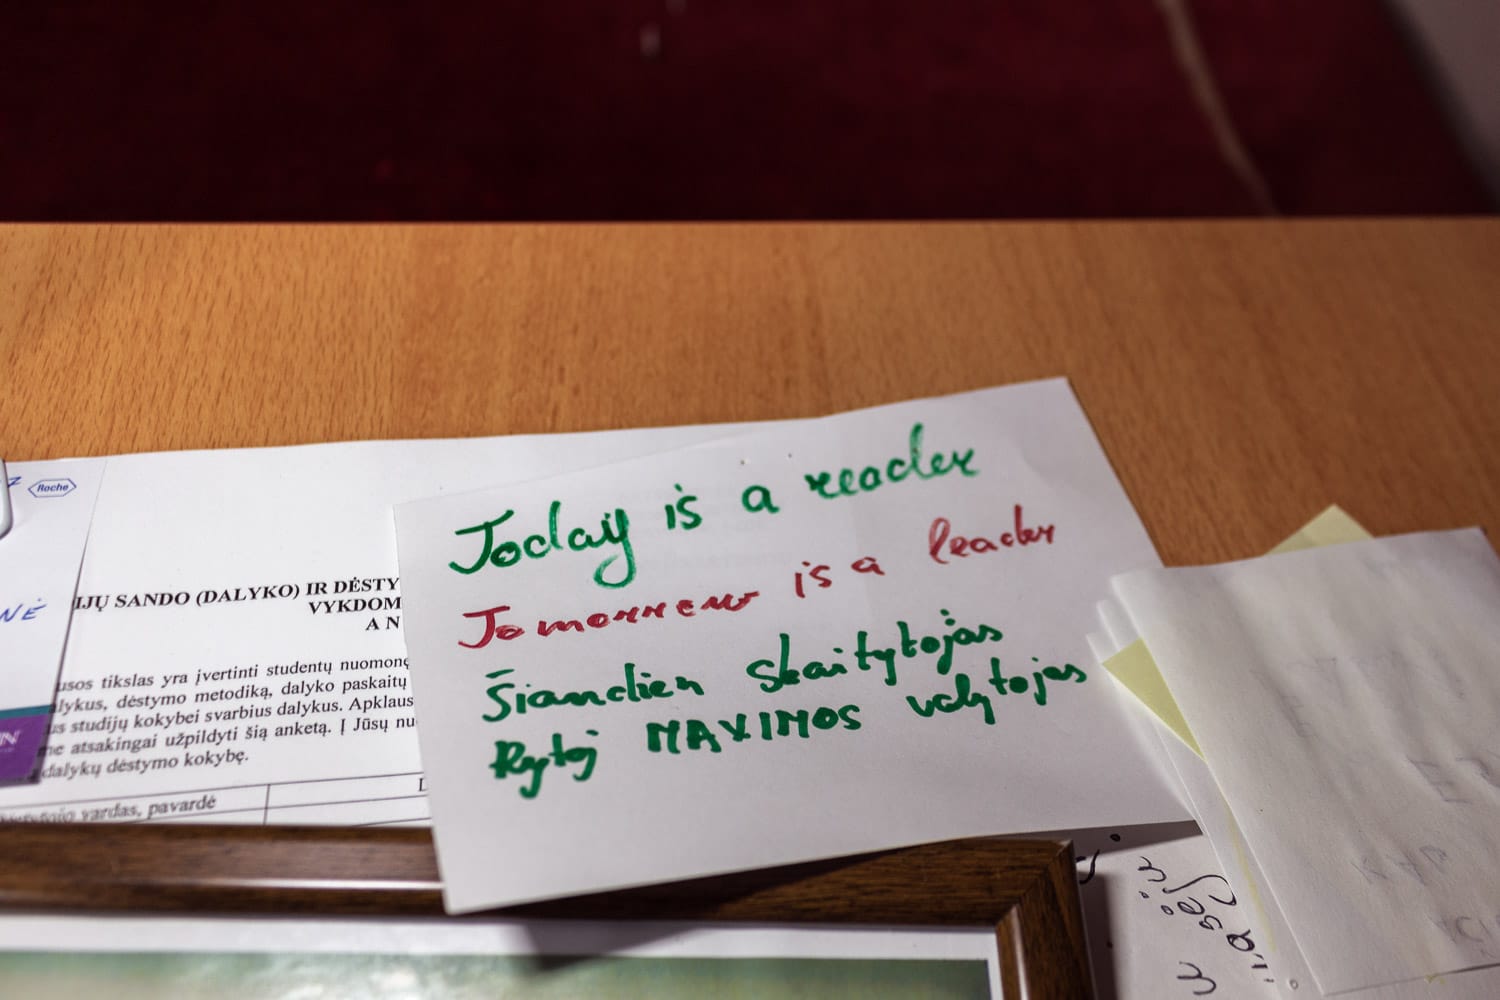 Roche
NĖ
IJŲ SANDO (DALYKO) IR DĖSTY
VYKDOM
A N
usos tikslas yra įvertinti studentų nuomonę
lykus, dėstymo metodiką, dalyko paskaitų
us studijų kokybei svarbius dalykus. Apklaus
me atsakingai užpildyti šią anketą. Į Jūsų nu
dalykų dėstymo kokybę.
vardas, pavardė
Today is a reader
Tomorrow is a leader
Šiandien skaitytojas
Rytoj MAXIMOS valytojas